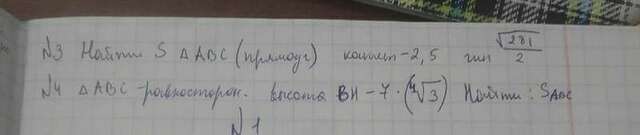 N3 Найти S △ABC (прямоуг) катет-2,5 гип √281/2
N4 △ABC-равносторон. высота BH-7·(∜3) Найти: SABC
N1